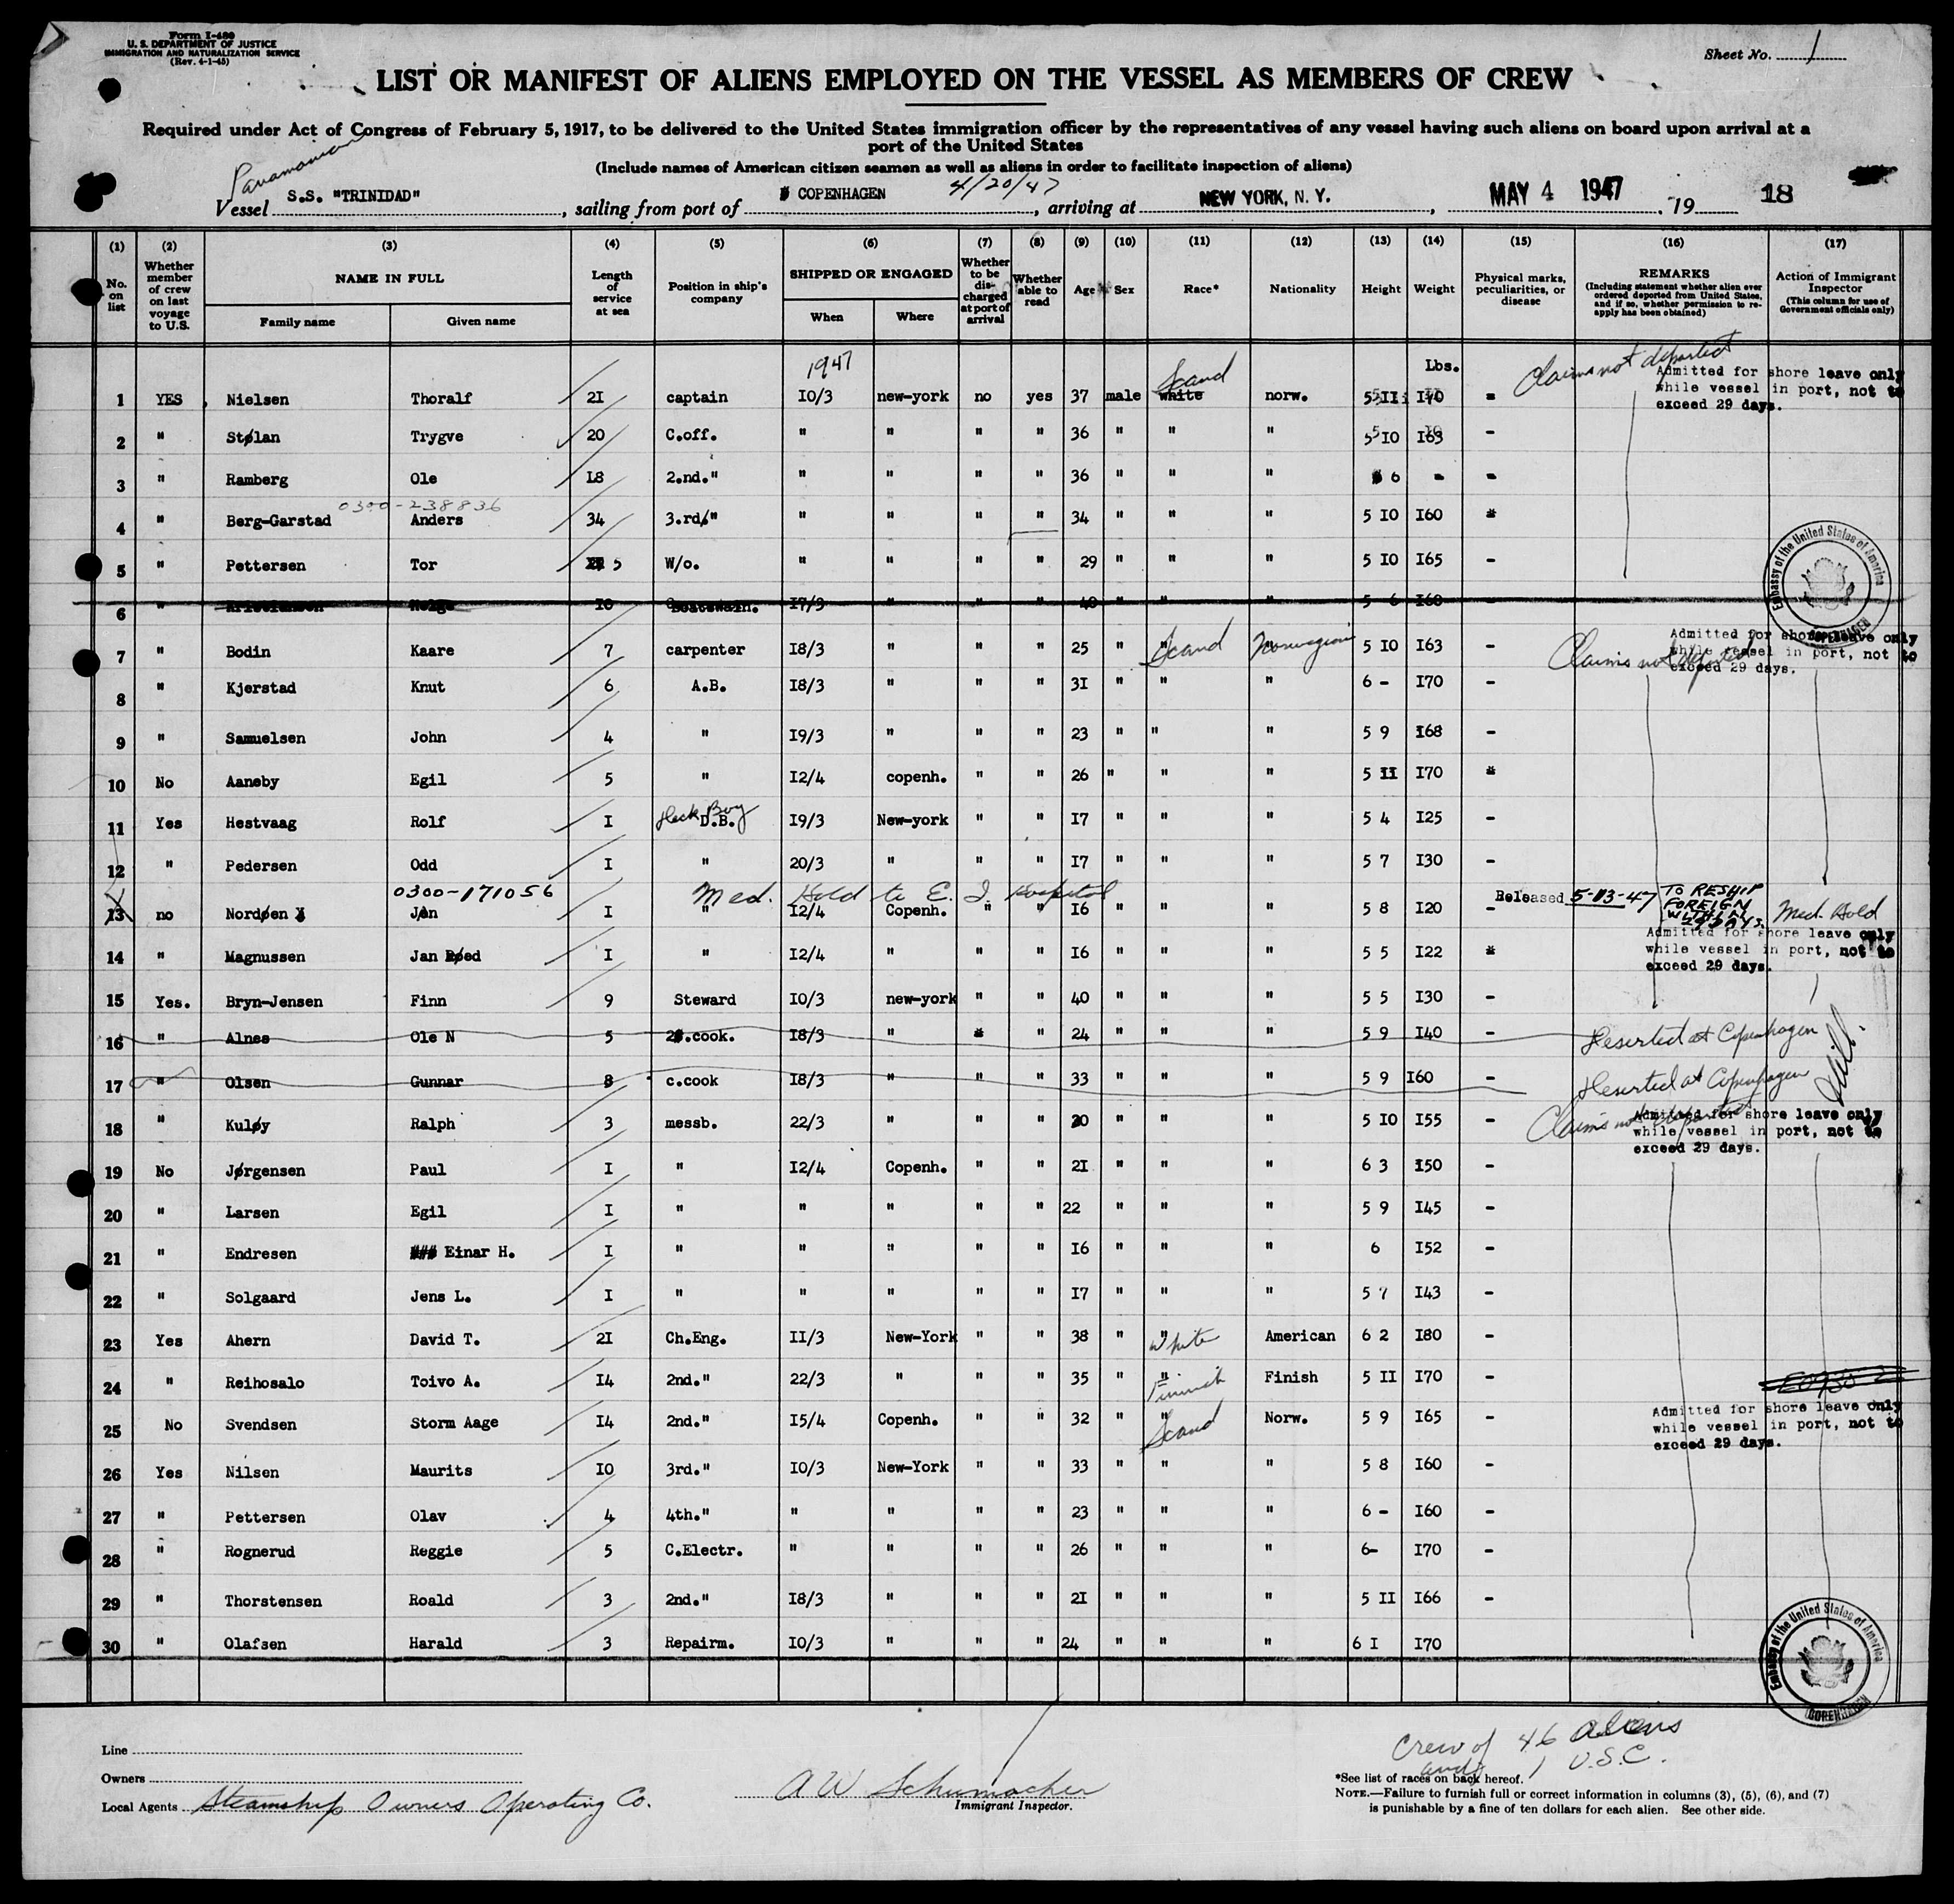 Form I-480
U. S. DEPARTMENT OF JUSTICE
IMMIGRATION AND NATURALIZATION SERVICE
(Rev. 4-1-45)
Sheet No. 1
LIST OR MANIFEST OF ALIENS EMPLOYED ON THE VESSEL AS MEMBERS OF CREW
Required under Act of Congress of February 5, 1917, to be delivered to the United States immigration officer by the representatives of any vessel having such aliens on board upon arrival at a
port of the United States
(Include names of American citizen seamen as well as aliens in order to facilitate inspection of aliens)
Panamanian
Vessel S.S. "TRINIDAD", sailing from port of COPENHAGEN 4/20/47, arriving at NEW YORK, N. Y., MAY 4 1947, 19 18
(1) (2) (3) (4) (5) (6) (7) (8) (9) (10) (11) (12) (13) (14) (15) (16) (17)
No. on list Whether member of crew on last voyage to U.S. NAME IN FULL Family name Given name Length of service at sea Position in ship's company SHIPPED OR ENGAGED When Where Whether to be discharged at port of arrival Whether able to read Age Sex Race* Nationality Height Weight Physical marks, peculiarities, or disease REMARKS (Including statement whether alien ever ordered deported from United States, and if so, whether permission to re-apply has been obtained) Action of Immigrant Inspector (This column for use of Government officials only)
1947 Scand Lbs. Claims not deported
1 YES Nielsen Thoralf 2I captain I0/3 new-york no yes 37 male white norw. 5 II I70 - Admitted for shore leave only while vessel in port, not to exceed 29 days.
2 " Stølan Trygve 20 C.off. " " " " 36 " " " 5 I0 I63 -
3 " Ramberg Ole I8 2.nd." " " " " 36 " " " 6 - -
0300-238836
4 " Berg-Garstad Anders 34 3.rd/" " " " " 34 " " " 5 I0 I60 *
5 " Pettersen Tor 5 W/o. " " " " 29 " " " 5 I0 I65 -
6 " Helge I0 Boatswain. I7/3 " " " 40 " " " 5 6 I60 -
Embassy of the United States of America COPENHAGEN
7 " Bodin Kaare 7 carpenter I8/3 " " " 25 " Scand Norwegian 5 I0 I63 - Claims not deported Admitted for shore leave only while vessel in port, not to exceed 29 days.
8 " Kjerstad Knut 6 A.B. I8/3 " " " 3I " " " 6 - I70 -
9 " Samuelsen John 4 " I9/3 " " " 23 " " " 5 9 I68 -
10 No Aaneby Egil 5 " I2/4 copenh. " " 26 " " " 5 II I70 *
11 Yes Hestvaag Rolf I Deck Boy D.B. I9/3 New-york " " I7 " " " 5 4 I25 -
12 " Pedersen Odd I " 20/3 " " " I7 " " " 5 7 I30 -
0300-171056 Med. Hold to E. I. Hospital
13 no Nordøen Jan I " I2/4 Copenh. " " I6 " " " 5 8 I20 - Released 5-13-47 TO RESHIP FOREIGN WITHIN 29 DAYS. Med. Hold
14 " Magnussen Jan Røed I " I2/4 " " " I6 " " " 5 5 I22 * Admitted for shore leave only while vessel in port, not to exceed 29 days.
15 Yes. Bryn-Jensen Finn 9 Steward I0/3 new-york " " 40 " " " 5 5 I30 -
16 " Alnes Ole N 5 2.cook. I8/3 " * " 24 " " " 5 9 I40 - Deserted at Copenhagen
17 " Olsen Gunnar 8 c.cook I8/3 " " " 33 " " " 5 9 I60 - Deserted at Copenhagen
18 " Kuløy Ralph 3 messb. 22/3 " " " 20 " " " 5 I0 I55 - Claims not deported Admitted for shore leave only while vessel in port, not to exceed 29 days.
19 No Jørgensen Paul I " I2/4 Copenh. " " 2I " " " 6 3 I50 -
20 " Larsen Egil I " " " " " 22 " " " 5 9 I45 -
21 " Endresen Einar H. I " " " " " I6 " " " 6 I52 -
22 " Solgaard Jens L. I " " " " " I7 " " " 5 7 I43 -
23 Yes Ahern David T. 2I Ch.Eng. II/3 New-York " " 38 " " White American 6 2 I80 -
24 " Reihosalo Toivo A. I4 2nd." 22/3 " " " 35 " " Finnish Finish 5 II I70 -
25 No Svendsen Storm Aage I4 2nd." I5/4 Copenh. " " 32 " " Scand Norw. 5 9 I65 - Admitted for shore leave only while vessel in port, not to exceed 29 days.
26 Yes Nilsen Maurits I0 3rd." I0/3 New-York " " 33 " " " 5 8 I60 -
27 " Pettersen Olav 4 4th." " " " " 23 " " " 6 - I60 -
28 " Rognerud Reggie 5 C.Electr. " " " " 26 " " " 6- I70 -
29 " Thorstensen Roald 3 2nd." I8/3 " " " 2I " " " 5 II I66 -
30 " Olafsen Harald 3 Repairm. I0/3 " " " 24 " " " 6 I I70
Embassy of the United States of America COPENHAGEN
Crew of 46 aliens
and 1 U.S.C.
Line
Owners
Local Agents Steamship Owners Operating Co.
A W Schumacher
Immigrant Inspector.
*See list of races on back hereof.
NOTE.—Failure to furnish full or correct information in columns (3), (5), (6), and (7)
is punishable by a fine of ten dollars for each alien. See other side.